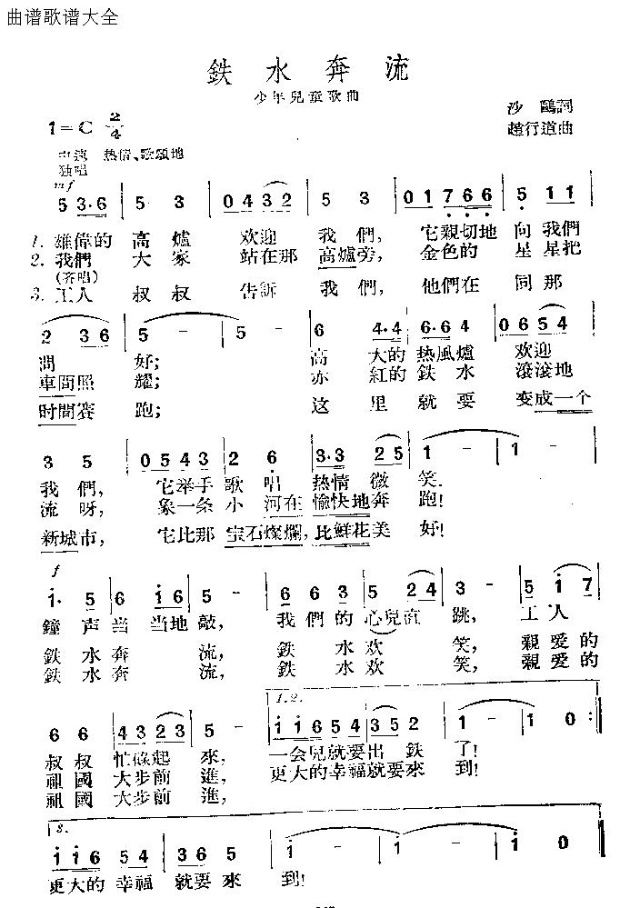 曲谱歌谱大全
鉄水奔流
少年兒童歌曲
沙鷗詞
1=C 2/4
趙行道曲
中速 热情、歌頌地
独唱
mf
5 3·6 | 5 3 | 0 4 3 2 | 5 3 | 0 1 7 6 6 | 5 1 1 |
1. 雄偉的 高爐 欢迎 我們, 它親切地 向我們
2. 我們 大家 站在那 高爐旁, 金色的 星星把
(齐唱)
3. 工人 叔叔 告訴 我們, 他們在 同那
2 3 6 | 5 - | 5 - | 6 4·4 | 6·6 4 | 0 6 5 4 |
問 好; 高 大的 热風爐 欢迎
車間照 耀; 赤 紅的 鉄水 滾滾地
时間賽 跑; 这 里 就要 变成一个
3 5 | 0 5 4 3 | 2 6 | 3·3 2 5 | 1 - | 1 - |
我們, 它举手 歌唱 热情微 笑.
流呀, 象一条 小河在 愉快地奔 跑!
新城市, 它比那 宝石燦爛, 比鮮花美 好!
f
1· 5 | 6 1 6 | 5 - | 6 6 3 | 5 2 4 | 3 - | 5 1 7 |
鐘声当 当地敲, 我們的 心兒直 跳, 工人
鉄水奔 流, 鉄水欢 笑, 親爱的
鉄水奔 流, 鉄水欢 笑, 親爱的
1.2.
6 6 | 4 3 2 3 | 5 - | 1 1 6 5 4 | 3 5 2 | 1 - | 1 0 :|
叔叔 忙碌起 來, 一会兒就要出 鉄 了!
祖國 大步前 進, 更大的幸福就要來 到!
祖國 大步前 進,
3.
1 1 6 5 4 | 3 6 5 | 1 - | 1 - | 1 - | 1 0 ‖
更大的 幸福 就要來 到!